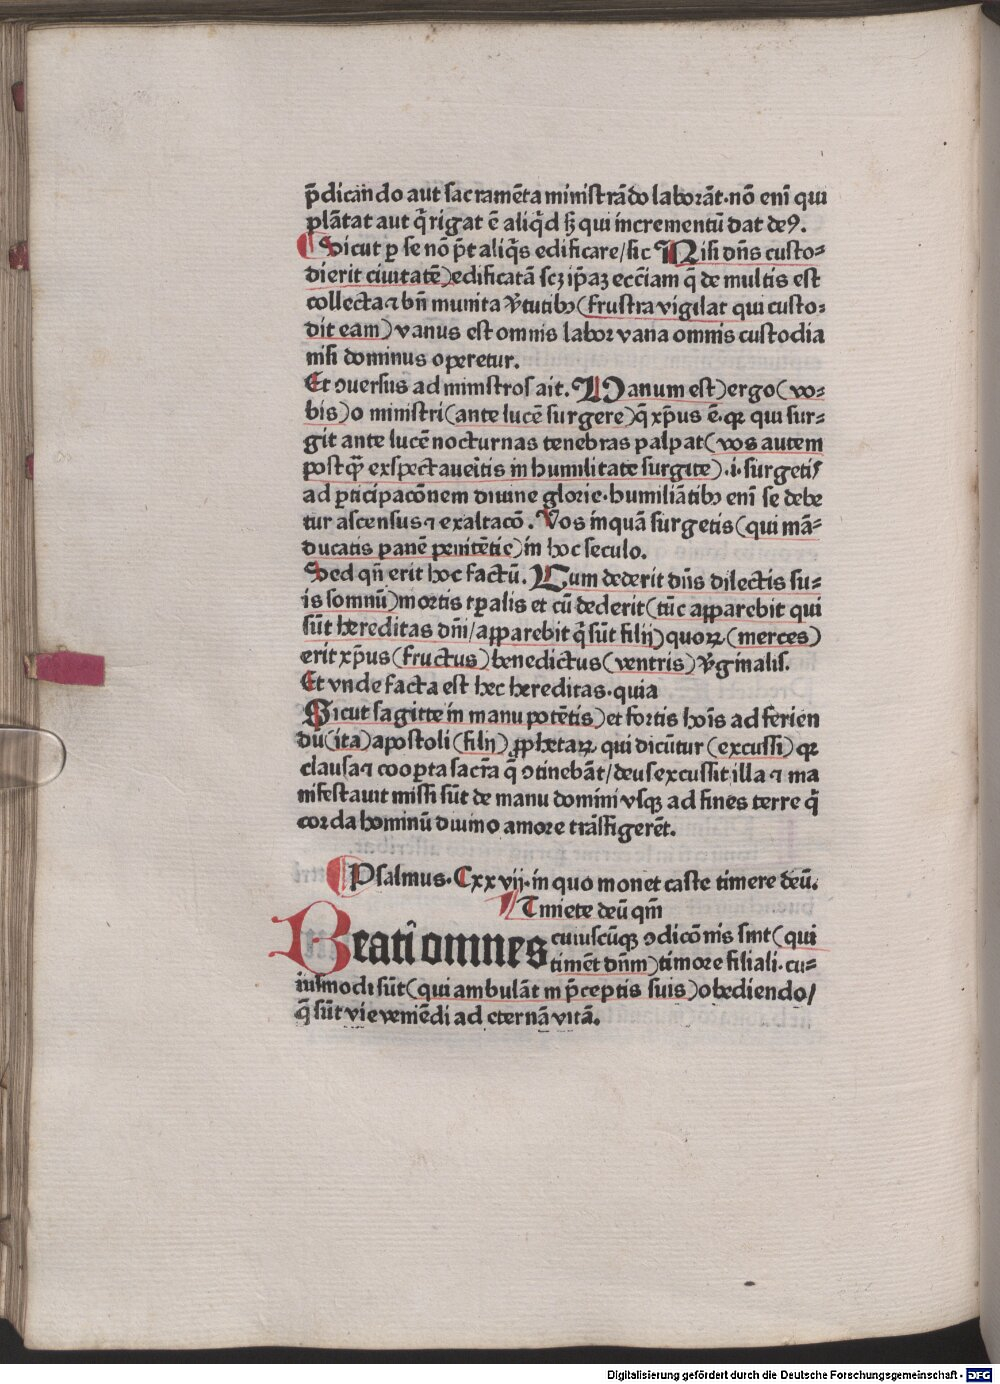 p̄dicando aut sacramēta ministrādo laborāt·nō eni̅ qui
plātat aut q̄ rigat ē aliq̄d sꝫ qui incrementū dat deꝰ.
Sicut ꝑ se nō p̄t aliq̄s edificare/sic Nisi dn̄s custo⸗
dierit ciuitatē)edificatā scꝫ ip̄aꝫ ecc̄iam q̄ de multis est
collecta ⁊ bn̄ munita v̓tutibꝰ(frustra vigilat qui custo⸗
dit eam)vanus est omnis labor vana omnis custodia
nisi dominus operetur.
Et ꝯuersus ad ministros ait. Vanum est)ergo(vo⸗
bis)o ministri(ante lucē surgere)q̄ xp̄us ē·qꝛ qui sur⸗
git ante lucē nocturnas tenebras palpat(vos autem
postqꝫ exspectaueritis in humilitate surgite).i·surgetis
ad ꝑticipacōnem diuine glorie·humiliātibꝰ eni̅ se debe
tur ascensus ⁊ exaltacō. Vos inquā surgetis(qui mā⸗
ducatis panē penitētie)in hoc seculo.
Sed qn̄ erit hoc factū. Cum dederit dn̄s dilectis su⸗
is somnū)mortis tꝑalis et cū dederit(tūc apparebit qui
sūt hereditas dn̄i/apparebit q̄ sūt filij)quoꝝ(merces)
erit xp̄us(fructus)benedictus(ventris)v̓ginalis.
Et vnde facta est hec hereditas·quia
Sicut sagitte in manu potētis)et fortis ho̅is ad ferien
dū(ita)apostoli(filij)ꝓphetaꝝ qui dicūtur(excussi)qꝛ
clausa ⁊ cooꝑta sacr̄a q̄ ꝯtinebāt/deus excussit illa ⁊ ma
nifestauit missi sūt de manu domini vsqꝫ ad fines terre q̄
corda hominū diuino amore trāsfigerēt.
Psalmus·Cxxvij·in quo monet caste timere deū.
Timete deū qm̄
Beati omnes cuiuscūqꝫ ꝯdicōnis sint(qui
timēt dn̄m)timore filiali·cu⸗
iusmodi sūt(qui ambulāt in p̄ceptis suis)obediendo/
q̄ sūt vie veniēdi ad eternā vitā.
Digitalisierung gefördert durch die Deutsche Forschungsgemeinschaft - DFG